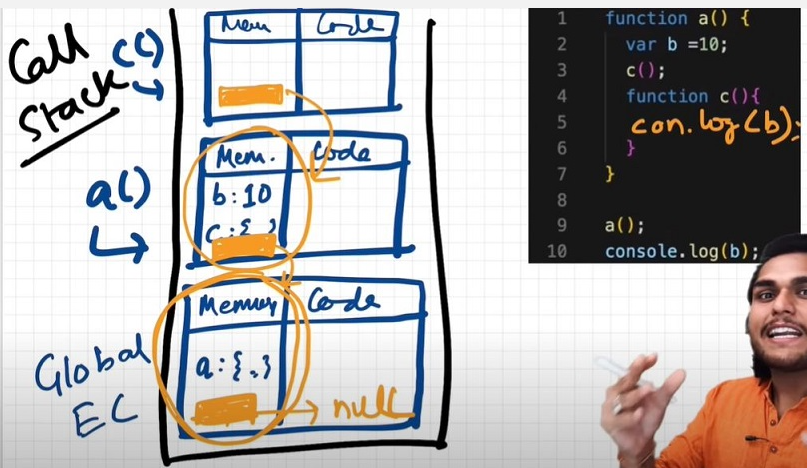 Call
Stack
c()
Mem
Code
a()
Mem.
Code
b:10
c:{
Global
EC
Memory
Code
a:{..}
null
1 function a() {
2 var b =10;
3 c();
4 function c(){
5 con.log(b);
6 }
7 }
8
9 a();
10 console.log(b);